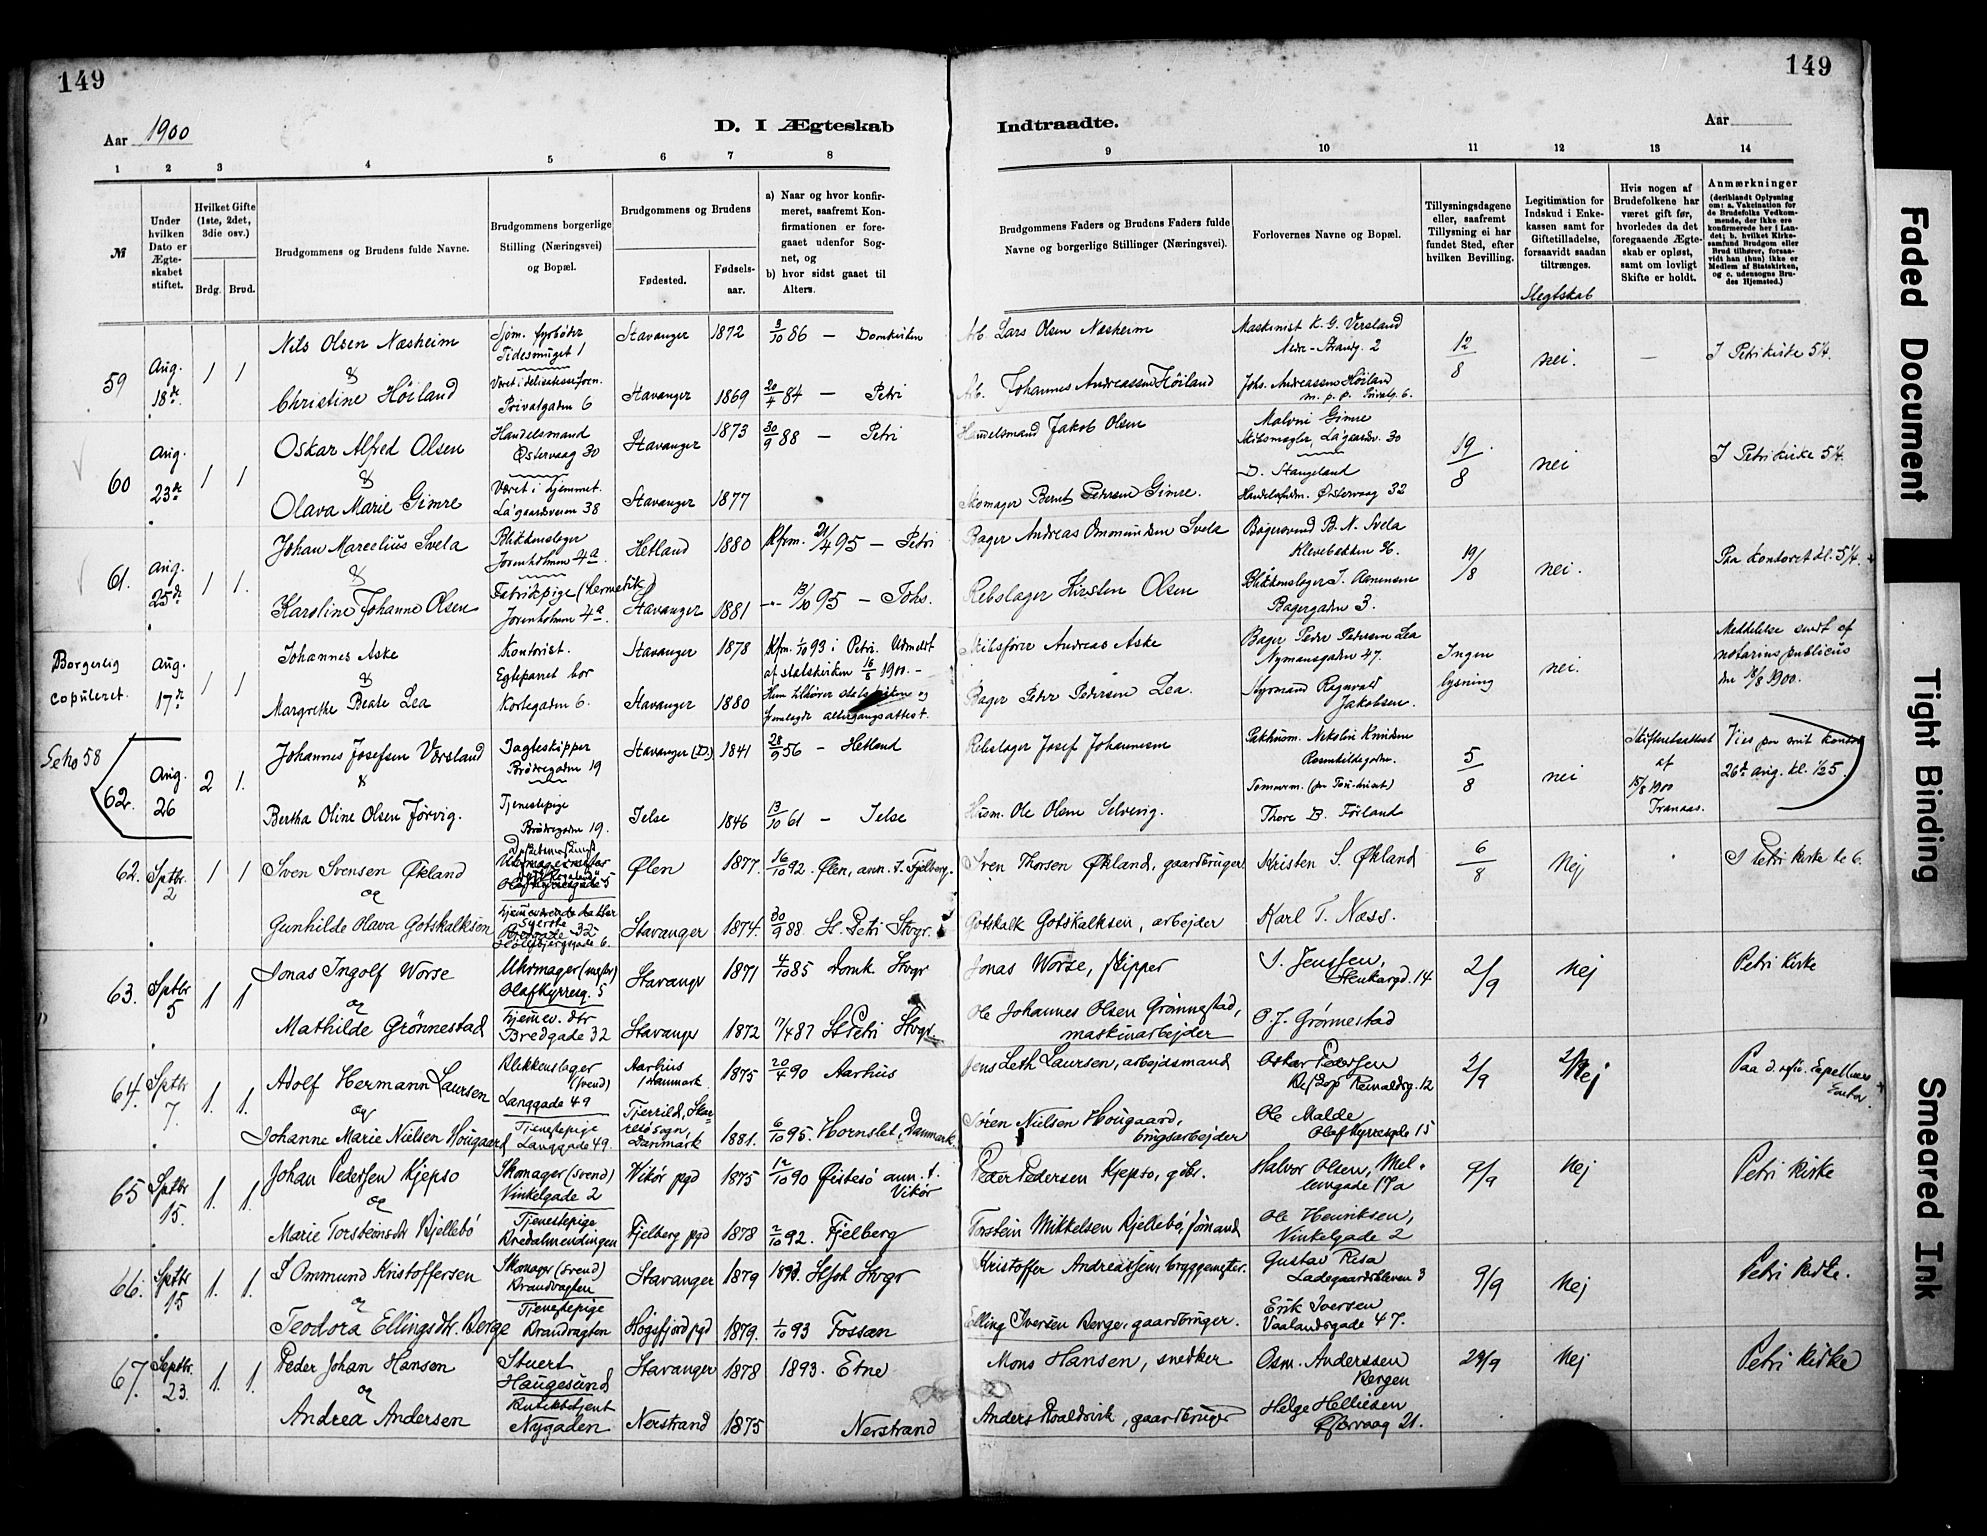 149
149
Aar 1900
D. I Ægteskab
Indtraadte.
Aar
1 2 3 4 5 6 7 8 9 10 11 12 13 14
№
Under hvilken Dato er Ægteskabet stiftet.
Hvilket Gifte (1ste, 2det, 3die osv.)
Brdg. Brud.
Brudgommens og Brudens fulde Navne.
Brudgommens borgerlige Stilling (Næringsvei) og Bopæl.
Brudgommens og Brudens
Fødested.
Fødselsaar.
a) Naar og hvor konfirmeret, saafremt Konfirmationen er foregaaet udenfor Sognet, og
b) hvor sidst gaaet til Alters.
Brudgommens Faders og Brudens Faders fulde Navne og borgerlige Stillinger (Næringsvei).
Forlovernes Navne og Bopæl.
Tillysningsdagene eller, saafremt Tillysning ei har fundet Sted, efter hvilken Bevilling.
Legitimation for Indskud i Enkekassen samt for Giftetilladelse, forsaavidt saadan tiltrænges.
Slegtskab
Hvis nogen af Brudefolkene har været gift før, hvorledes da det foregaaende Ægteskab er opløst, samt om lovligt Skifte er holdt.
Anmærkninger
(deriblandt Oplysning om: a. Vakcination for de Brudefolks Vedkommende, der ikke ere konfirmerede her i Landet; b. hvilket Kirkesamfund Brudgom eller Brud tilhører, forsaavidt han (hun) ikke er Medlem af Statskirken, og c. udensogns Brudes Hjemsted.)
59 Aug. 18de 1 1 Nils Olsen Næsheim Sjøm. fyrbøder Tidesmuget 1 Stavanger 1872 3/10 86 — Domkirken
Arb. Lars Olsen Næsheim Maskinist K. G. Versland Nedre-Strandg. 2 12/8 nei. — I Petrikirke 5¼.
& Christine Höiland Privatgaden 6 Stavanger 1869 20/4 84 — Petri
Arb. Johannes Andreassen Höiland Johs. Andreassen Höiland Privatg. 6.
60 Aug. 23de 1 1 Oskar Alfred Olsen Handelsmand Østervaag 30 Stavanger 1873 30/9 88 — Petri
Handelsmand Jakob Olsen Malvin Gimre Skibsmægler, Lagaardsv. 30 19/8 nei I Petrikirke 5¼.
& Olava Marie Gimre Været i hjemmet. Lagaardsveien 38 Stavanger 1877
Skomager Bernt Pedersen Gimre. D. Stangeland Handelsfuldm. Østervaag 32
61. Aug. 25de 1 1. Johan Marcelius Svela Blikkenslager Jorenholmen 4a. Hetland 1880 Kfrm. 21/4 95 — Petri
Bager Andreas Ommundsen Svela Bagersvend B. N. Svela Klevebakken 36. 19/8 nei. Paa kontoret kl. 5¼.
& Karoline Johanne Olsen Fabrikpige (hermetik) Jorenholmen 4a. Stavanger 1881 —"— 13/10 95 — Johs.
Rebslager Kirsten Olsen Blikkenslager I. Asmensen Bagergaden 3.
Borgerlig copuleret. Aug. 17de 1 1 Johannes Aske Kontorist. Stavanger 1878 Kfm. 1/10 93 i Petri. Udmeldt af statskirken 16/8 1900.—
Skibsfører Andreas Aske Bager Peder Pedersen Lea Nymansgaden 47. Ingen lysning nei. Meddelelse sendt af notarius publicus den 18/8 1900.
& Margrethe Beate Lea Egteparret bor Kortegaden 6. Stavanger 1880 Hun tilhører statskirken og fremlagde altergangsattest.
Bager Peder Pedersen Lea. Styrmand Ragnvald Jakobsen.
Se No 58
62. Aug. 26 2 1. Johannes Josefsen Vørsland Jagteskipper Brödregaden 19 Stavanger (D.) 1841 28/9 56 — Hetland
Rebslager Josef Johannesen Pakhusm. Nikolai Knudsen Rosenkildegaden. 5/8 nei Skifteretsattest af 15/8 1900 Vies paa mit kontor 26de aug. kl. ½5.
& Bertha Oline Olsen Jørvig. Tjenestepige Brödregaden 19. Jelse 1846 13/10 61 — Jelse
Husm. Ole Olsen Selverig. Thore B. Föiland
62. Sptbr. 2 1 1 Sven Svensen Økland Olafkyrresgade 5 Ølen 1877. 16/10 92. Ølen, ann. t. Fjelberg.
Sven Thorsen Økland, gaardbruger Kristen S. Økland 6/8 Nej I Petri kirke kl 6.
og Gunhilde Olava Gotskalksen Bredgade 32 Stavanger 1874. 30/9 88 St. Petri Stvgr.
Gotskalk Gotskalksen, arbejder Karl T. Næss.
63. Sptbr 5 1. 1 Jonas Ingolf Worse Uhrmager (mester) Olafkyrresg. 5 Stavanger 1871 4/10 85 Domk Stvgr
Jonas Worse, skipper S. Jenssen, Stenkargd. 14. 2/9 Nej Petri kirke
og Mathilde Grönnestad Hjemmev. dtr Bredgade 32 Stavanger 1872 17/4 87 St Petri Stvgr
Ole Johannes Olsen Grönnestad, maskinarbejder O. J. Grønnestad
64. Sptbr 7. 1. 1. Adolf Hermann Laursen Blikkenslager (svend) Langgade 49 Aarhus Danmark 1875 20/4 90 Aarhus
Jens Leth Laursen, arbejdsmand Oskar Pedersen Reinaldsg. 12 2/9 Nej
og Johanne Marie Nielsen Hougaard Tjenestepige Langgade 49. Danmark 1881. 6/10 95. Hornslet, Danmark.
Søren Nielsen Hougaard, brugsarbejder Ole Malde Olafkyrresgde 15
65 Sptbr 15. 1. 1. Johan Pedersen Kjepso Skomager (svend) Vinkelgade 2 Wikör pgd 1875 12/10 90 Østesö ann. t. Vikør
Peder Pedersen Kjepso, gdbr. Halvor Olsen, Mellemgade 17a 9/9 Nej Petri kirke
og Marie Torsteinsdtr Kjellebö Tjenestepige Bredalmendingen Fjelberg pgd 1878 2/10 92. Fjelberg
Torstein Mikkelsen Kjellebö, sjömand Ole Henriksen, Vinkelgade 2
66. Sptbr 15 1. 1. T Ommund Kristoffersen Skomager (svend) Brandvagten Stavanger 1879 1893. St Joh Stvgr
Kristoffer Andreassen, bryggemester. Gustav Risa Ladegaardsveien 3 9/9 Nej Petri kirke.
og Teodora Ellingsdtr. Berge Tjenestepige Brandvagten Høgsfjord pgd 1879. 1/10 93 Fossan
Elling Iversen Berge, gaardbruger. Erik Iversen Vaalandsgade 47.
67. Septbr. 23. 1. 1. Peder Johan Hansen Stuert Haugesund Stavanger 1878 1893. Etne
Mons Hansen, snedker Osm. Anderssen Bergen 23/9 Nej Petri kirke
og Andrea Andersen Butikbetjent Nygaden Nerstrand 1875 Nerstrand
Anders Roaldsvik, gaardbruger Helge Helliesen Østervaag 21.
Faded Document
Tight Binding
Smeared Ink